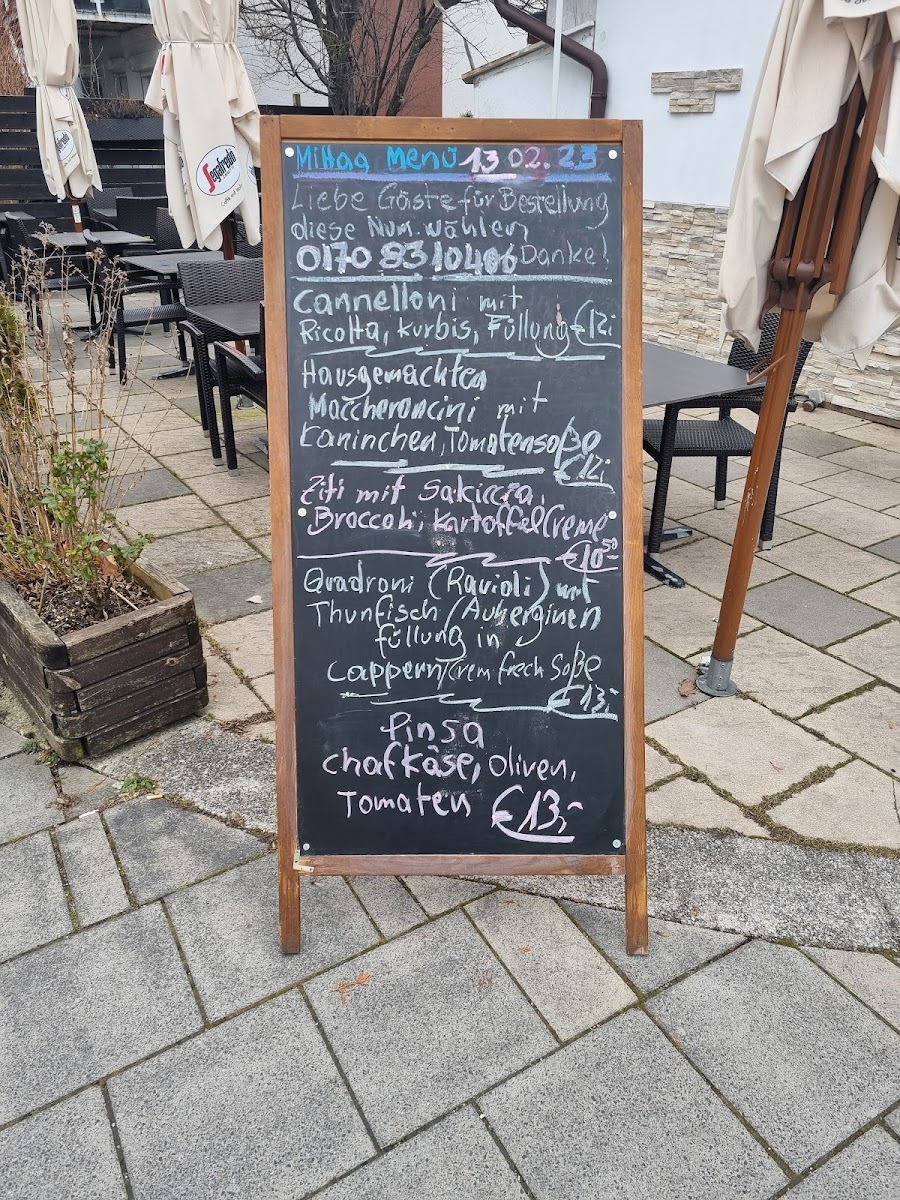 Segafredo
Mittag Menü 13 02. 23
Liebe Gäste für Bestellung
diese Num. wählen
0170 83 10406 Danke!
Cannelloni mit
Ricotta, Kurbis, Füllung €12,-
Hausgemachten
Maccheroncini mit
Kaninchen, Tomatensoße
€12,-
Ziti mit Sakiccia,
Broccoli, Kartoffel Creme
€10,50
Quadroni (Ravioli) mit
Thunfisch/Auberginen
füllung in
Cappern/Crem frech Soße
€13,-
Pinsa
Chafkäse, Oliven,
Tomaten €13,-